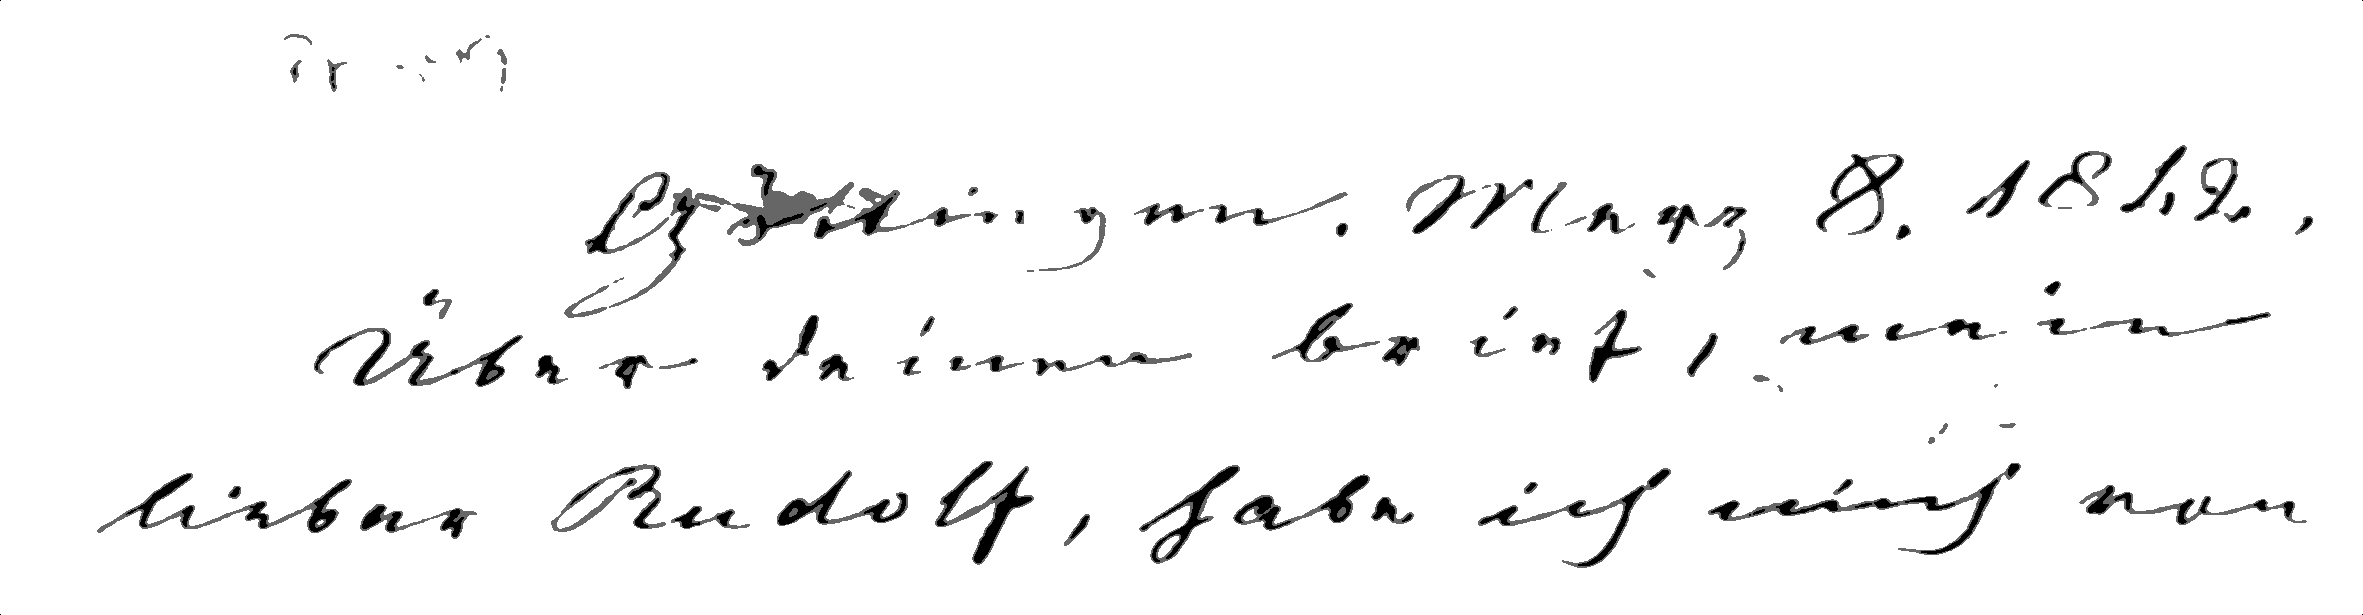 Göttingen. Merz 8. 1842.,
Über deinen brief, mein
lieber Rudolf, habe ich mich von